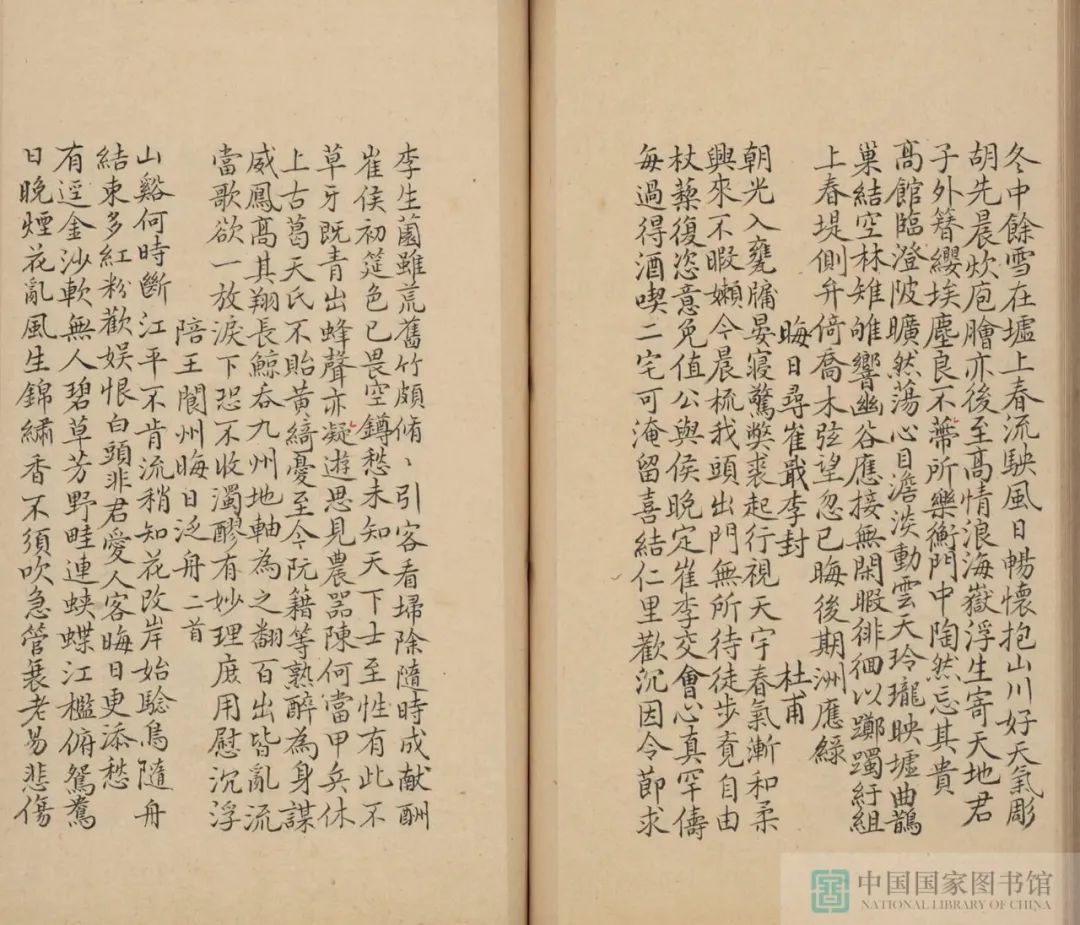 冬中餘雪在墟上春流駛風日暢懷抱山川好天氣彫
胡先晨炊庖膾亦後至高情浪海嶽浮生寄天地君
子外簪纓埃塵良不蔕所樂衡門中陶然忘其貴
髙館臨澄陂曠然蕩心目澹淡動雲天玲瓏映墟曲鵲
巢結空林雉雊響幽谷應接無閑暇徘徊以躑躅紆組
上春堤側弁倚喬木弦望忽已晦後期洲應緑
晦日尋崔戢李封 杜甫
朝光入甕牖晏寢驚弊裘起行視天宇春氣漸和柔
興來不暇嬾今晨梳我頭出門無所待徒步覺自由
杖藜復恣意免值公與侯晚定崔李交會心真罕儔
每過得酒喫二宅可淹留喜結仁里歡沉因令節求
李生園雖荒舊竹頗脩〻引客看埽除隨時成献酬
崔侯初筵色已畏空鐏愁未知天下士至性有此不
草牙既青出蜂聲亦凝遊思見農器陳何當甲兵休
上古葛天氏不貽黃綺憂至今阮籍等熟醉為身謀
威鳳髙其翔長鯨吞九州地軸為之翻百出皆亂流
當歌欲一放淚下恐不收濁醪有妙理庶用慰沉浮
陪王閬州晦日泛舟二首
山谿何時斷江平不肯流稍知花改岸始驗鳥隨舟
結束多紅粉歡娯恨白頭非君愛人客晦日更添愁
有逕金沙軟無人碧草芳野畦連蛺蝶江檻俯鴛鴦
日晚煙花亂風生錦繡香不須吹急管衰老易悲傷
中国国家图书馆
NATIONAL LIBRARY OF CHINA